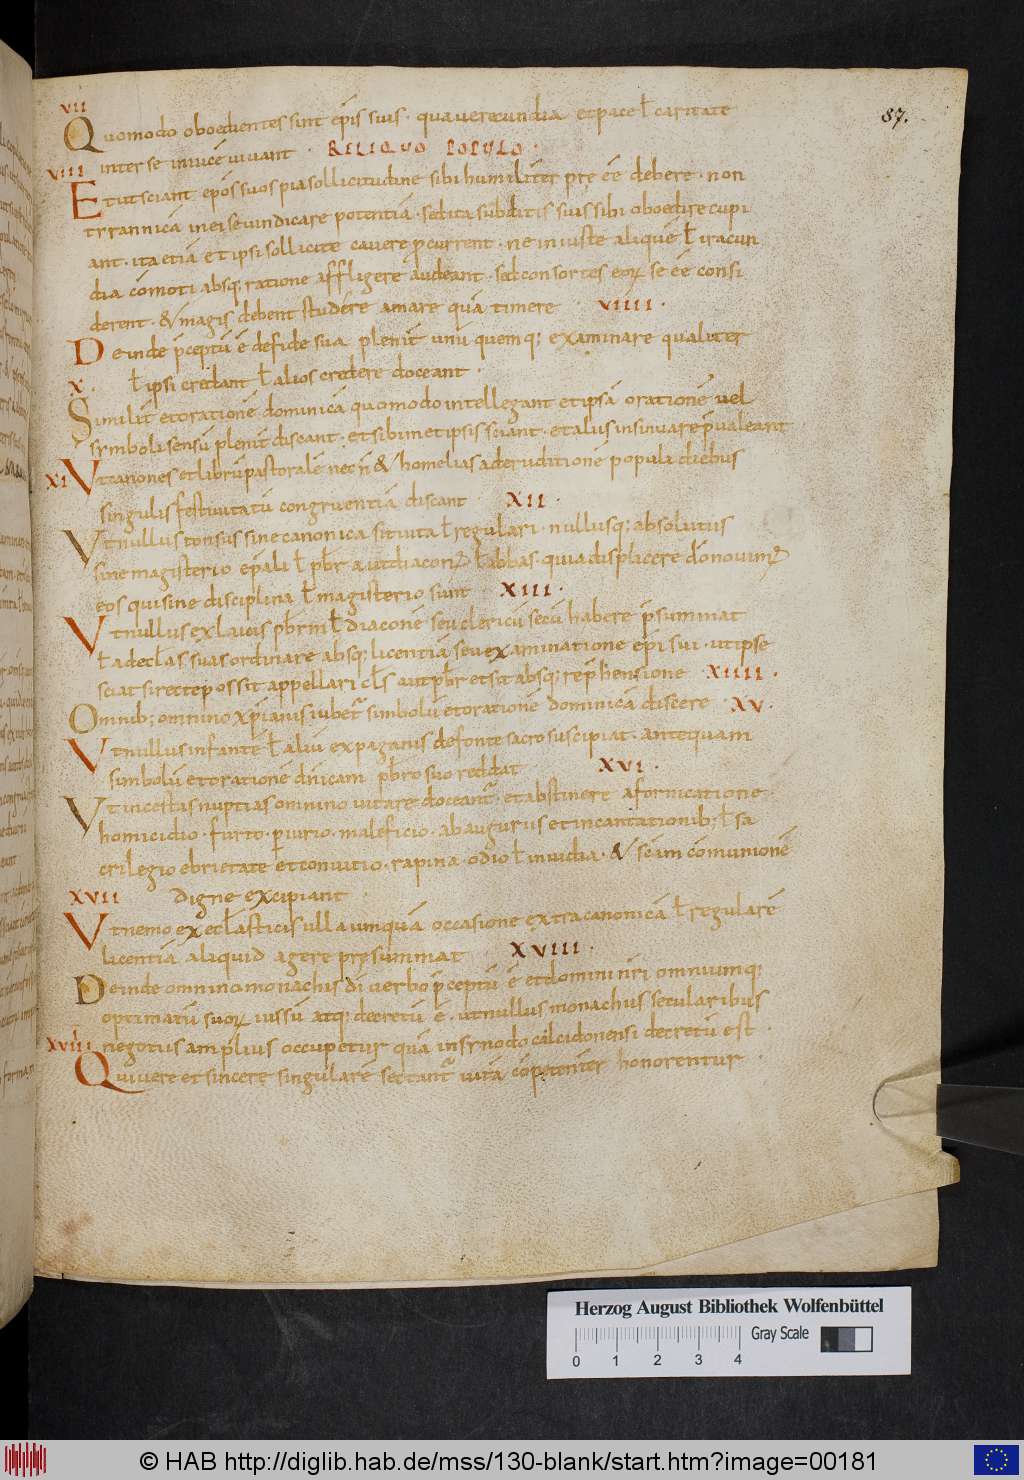 VII
87.
Quomodo oboedientes sint ep̄is suis · qua verecundia et pace ł caritate
inter se invicē vivant · RELIQUO POPULO ·
VIII
Et ut sciant ep̄os suos pia sollicitudine sibi humiliter pręēē debere · non
tyrannicā in ei se vindicare potentiā · sed ita subditis suis sibi oboedire cupi
ant · ita etiā et ipsi sollicite cavere p̄current · ne iniuste aliquē ł iracun
dia cōmoti absq; ratione affligere audeant · sed consortes eoꝝ se eē consi
derent · & magis debent studere amare quā timere · VIIII ·
Deinde p̄ceptū ē de fide sua plenit unū quemq; examinare qualiter
X · ł ipsi credant ł alios credere doceant ·
Similit et orationē dominicā quomodo intellegant et ipsā orationē vel
symboli sensū plenit discant · et sibimet ipsis sciant · et aliis insinuare p̄valeant
XI Ut canones et librū pastoralē nec ñ & homelias ad eruditionē populi diebus
singulis festivitatū congruentiā discant · XII ·
Ut nullus tonsus sine canonica sit vita ł regulari · nullusq; absolutus
sine magisterio ep̄ali ł pb̄r aut diacon ł abbas · quia displicere dō novim
eos qui sine disciplina ł magisterio sunt XIII ·
Ut nullus ex laicis pb̄rm ł diaconē seu clericū secū habere p̄summat
ł ad eccłas suas ordinare absq; licentiā seu examinatione ep̄i sui · ut ipse
sciat si recte possit appellari cłs aut pb̄r et sit absq; rep̄hensione XIIII ·
Omnib; omnino xp̄ianis iubet simbolū et orationē dominicā discere XV ·
Ut nullus infantē ł aliū ex paganis de fonte sacro suscipiat · antequam
simbolū et orationē dn̄icam pb̄ro suo reddat XVI ·
Ut incestas nuptias omnino vitare doceant · et abstinere a fornicatione ·
homicidio · furto · piurio · maleficio · ab auguriis et incantationib; ł sa
crilegio ebrietate et convitio · rapina · odio ł invidia · & scām cōmunionē
XVII digne excipiant ·
Ut nemo ex eccłasticis ulla umquā occasione extra canonicā ł regularē
licentiā aliquid agere pręsummat XVIII ·
Deinde omnino monachis dī verbo p̄ceptū ē et domini nr̄i omniumq;
optimatū suoꝝ iussū atq; decretū ē · ut nullus monachus secularibus
XVIIII negotiis amplius occupetur quā in synodo calcidonensi decretū est ·
Qui vere et sincere singularē sectant vitā cōpetenter honorentur ·
Herzog August Bibliothek Wolfenbüttel
Gray Scale
0 1 2 3 4
© HAB http://diglib.hab.de/mss/130-blank/start.htm?image=00181